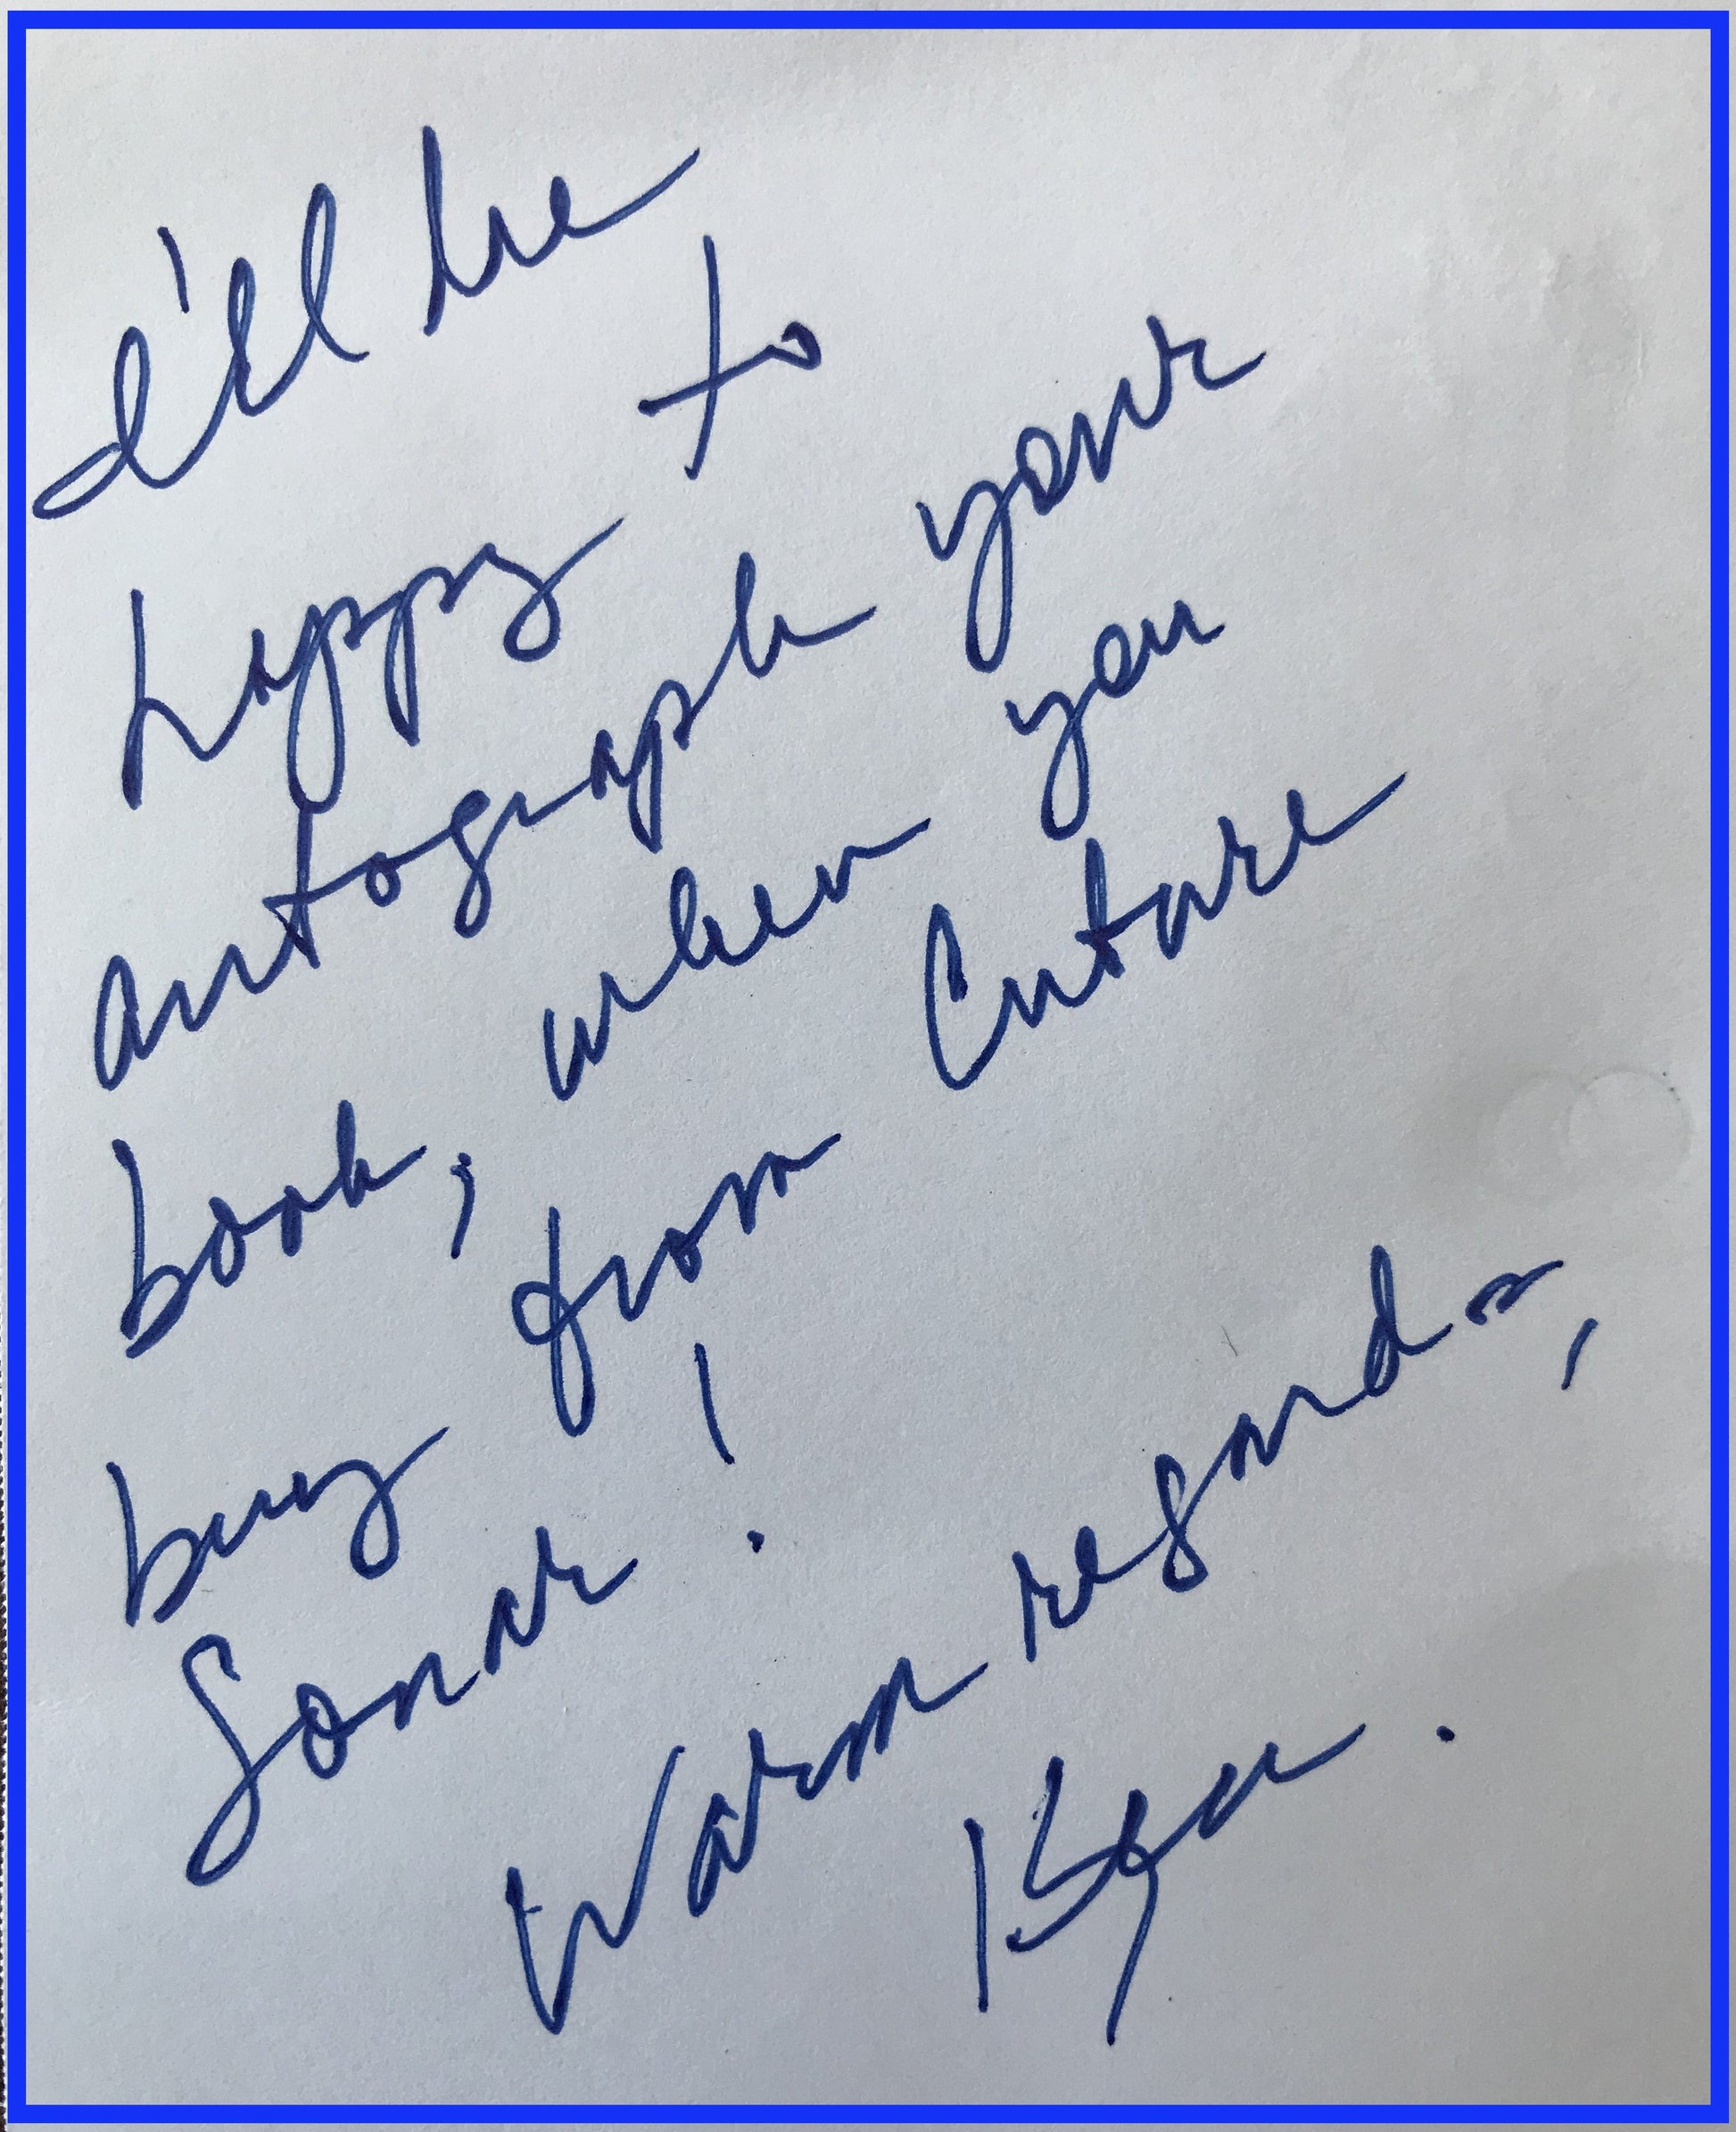 I'll be
happy to
autograph your
book, when you
buy from Crtare
Sonar!
Warm regards,